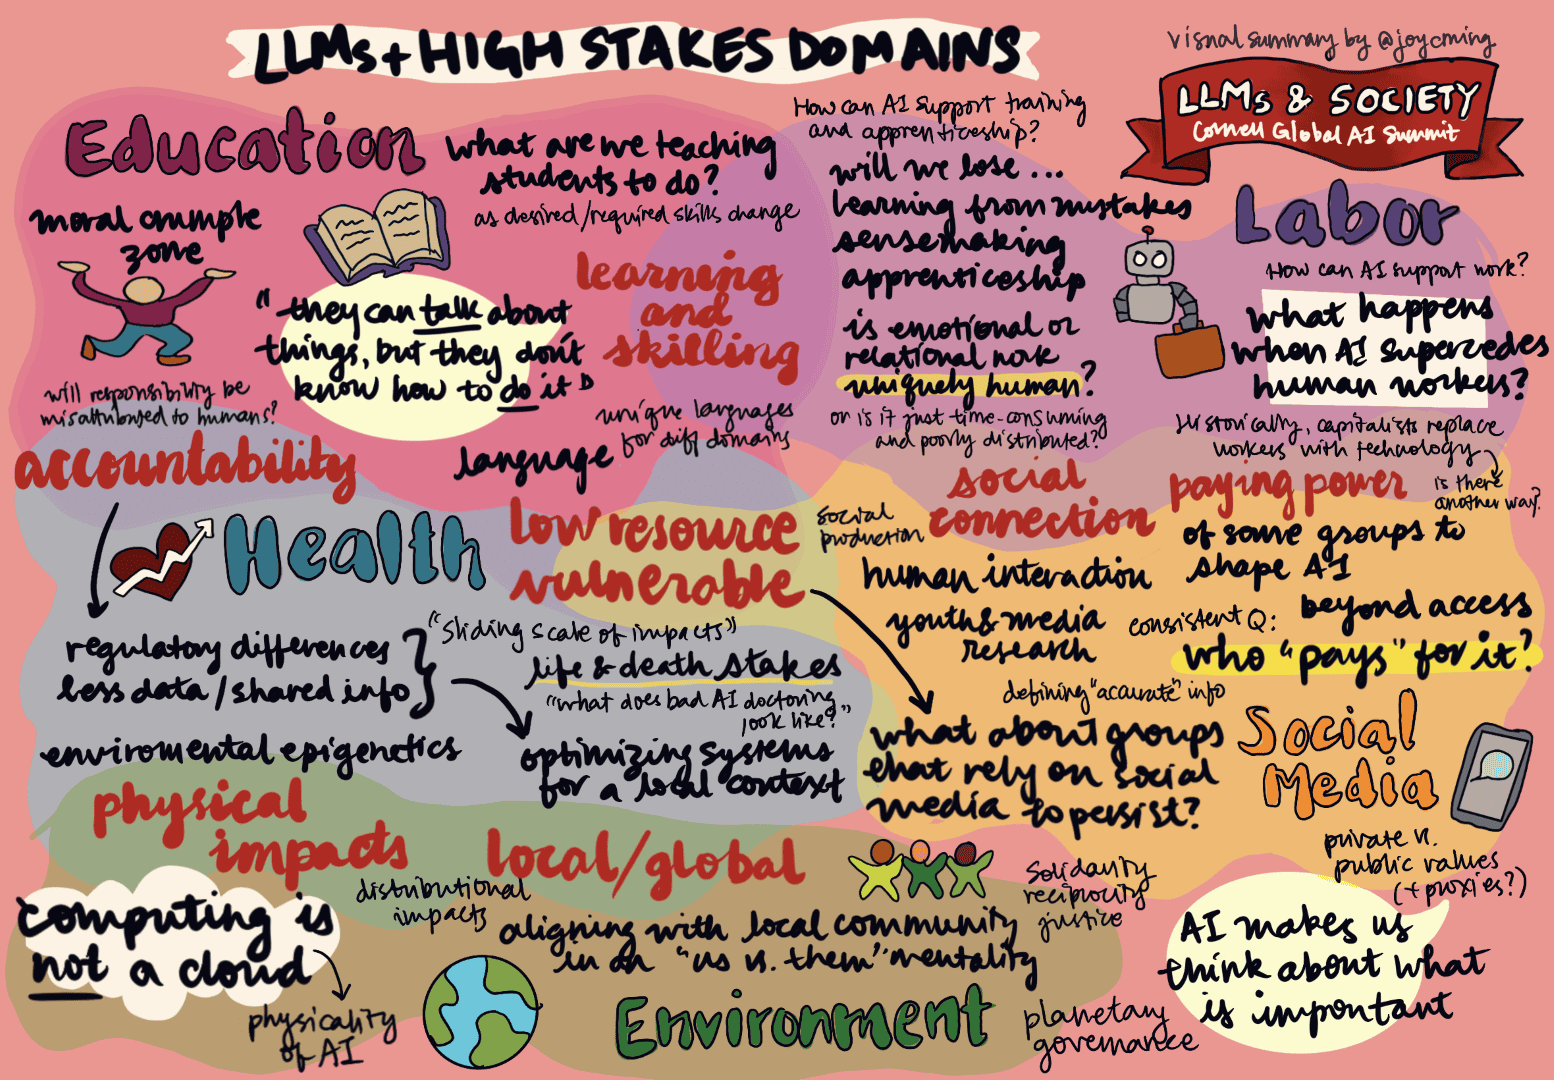 LLMs + HIGH STAKES DOMAINS
visual summary by @joycming
LLMs & SOCIETY
Cornell Global AI Summit
Education
what are we teaching
students to do?
as desired/required skills change
moral crumple
zone
"they can talk about
things, but they don't
know how to do it"
learning
and
skilling
will responsibility be
misattributed to humans?
accountability
language
unique languages
for diff domains
How can AI support training
and apprenticeship?
will we lose ...
learning from mistakes
sensemaking
apprenticeship
is emotional or
relational work
uniquely human?
or is it just time-consuming
and poorly distributed?
Labor
How can AI support work?
what happens
when AI supercedes
human workers?
Historically, capitalists replace
workers with technology
is there
another way?
Health
low resource
vulnerable
regulatory differences
less data/shared info
"Sliding scale of impacts"
life & death stakes
"what does bad AI doctoring
look like?"
enviromental epigenetics
optimizing systems
for a local context
social
production
social
connection
human interaction
youth & media
research
paying power
of some groups to
shape AI
consistent Q:
beyond access
who "pays" for it?
defining "accurate" info
what about groups
that rely on social
media to persist?
Social
Media
private v.
public values
(+ proxies?)
physical
impacts
local/global
distributional
impacts
computing is
not a cloud
physicality
of AI
aligning with local community
in an "us vs. them" mentality
Solidarity
reciprocity
justice
Environment
planetary
governance
AI makes us
think about what
is important